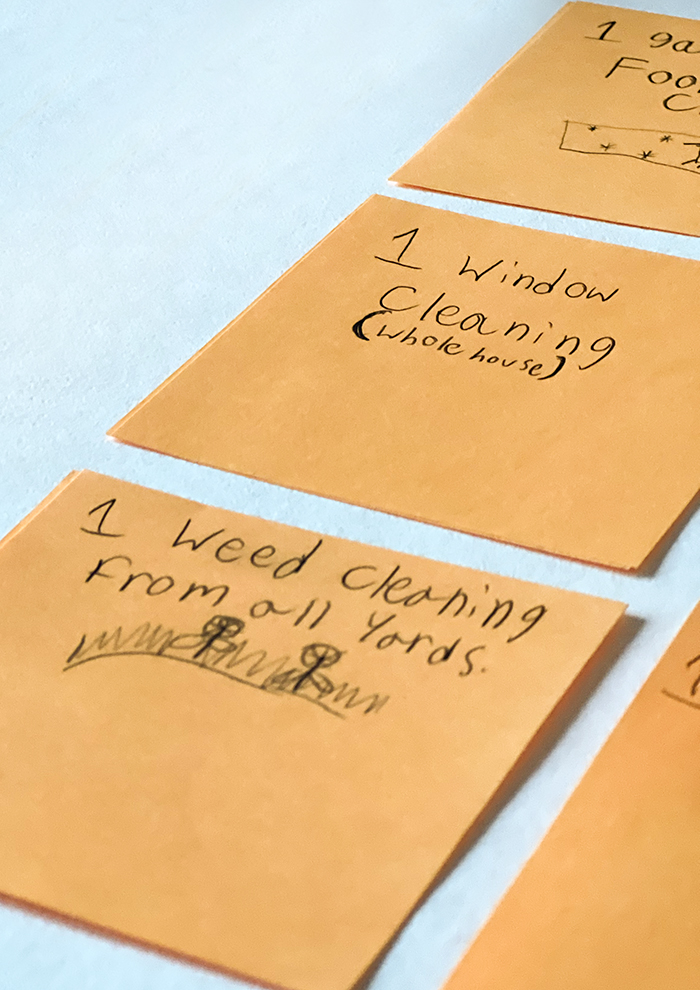 1
1 Window
Cleaning
(whole house)
1 Weed Cleaning
From all Yards.